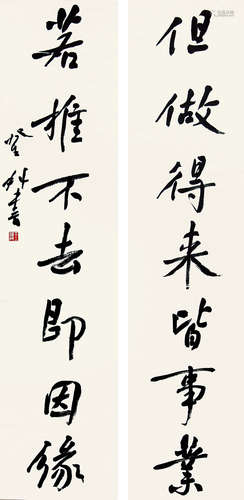 但做得来皆事業
若推不去即因緣
登科書